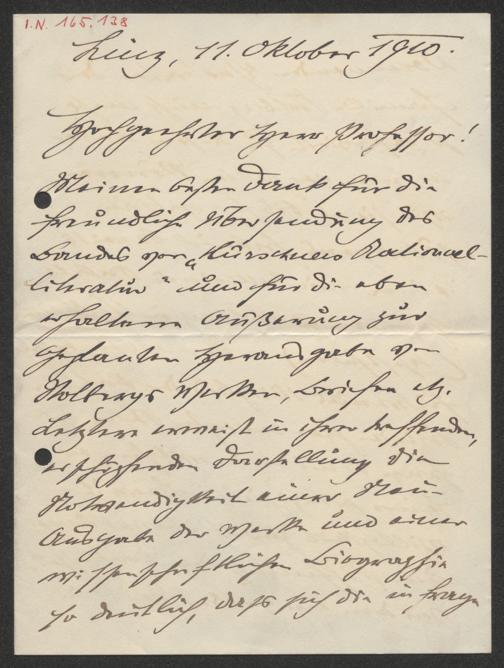 I.N. 165.138
Linz, 11. Oktober 1910.
Hochgeehrter Herr Professor!
Meinen besten Dank für die
freundliche Übersendung des
Bandes von „Kürschners National-
literatur" und für die eben
erhaltene Äußerung zur
geplanten Herausgabe von
Stolbergs Werken, Briefen etz.
Letztere erweist in ihrer treffenden,
erschöpfenden Darstellung die
Notwendigkeit einer Neu-
Ausgabe der Werke und einer
wissenschaftlichen Biographie
so deutlich, daß sich die in Frage